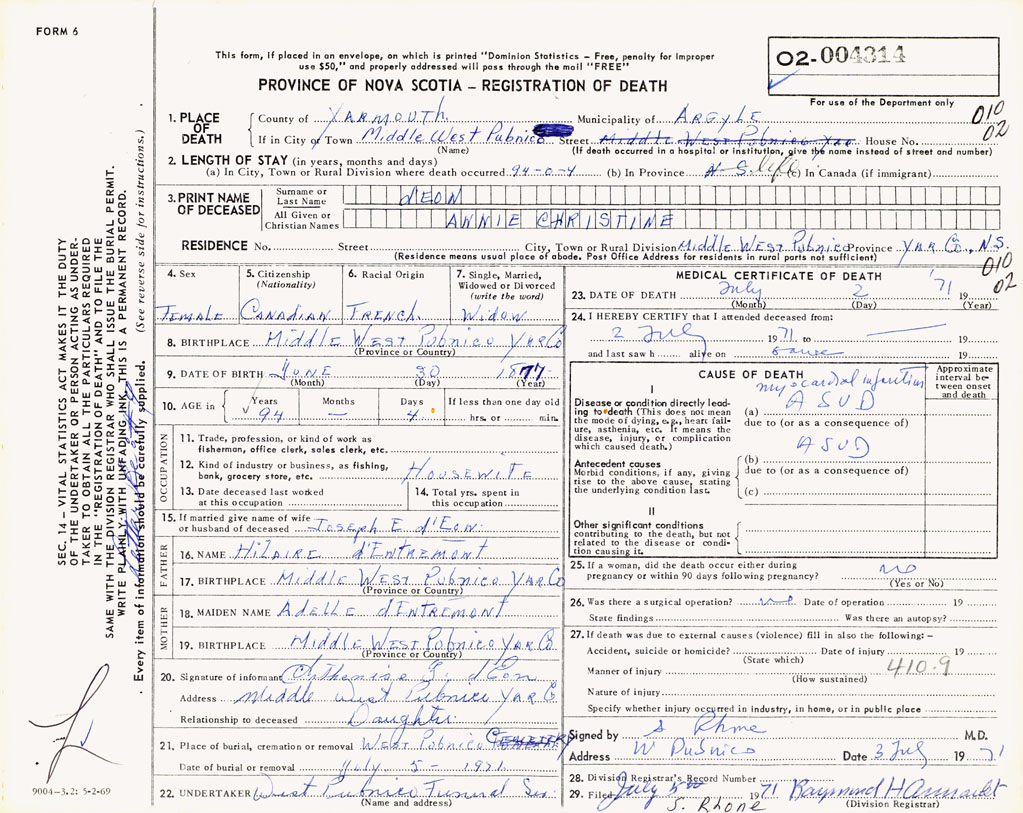 FORM 6
This form, if placed in an envelope, on which is printed "Dominion Statistics – Free, penalty for improper
use $50," and properly addressed will pass through the mail "FREE"
02-004314
PROVINCE OF NOVA SCOTIA – REGISTRATION OF DEATH
For use of the Department only
1. PLACE OF DEATH
County of YARMOUTH Municipality of ARGYLE 010
If in City or Town Middle West Pubnico Street Middle West Pubnico Yar House No. 02
(Name) (If death occurred in a hospital or institution, give the name instead of street and number)
2. LENGTH OF STAY (in years, months and days)
(a) In City, Town or Rural Division where death occurred 94-0-4 (b) In Province N.S. life (c) In Canada (if immigrant)
3. PRINT NAME OF DECEASED
Surname or Last Name d'EON
All Given or Christian Names ANNIE CHRISTINE
RESIDENCE No. Street City, Town or Rural Division Middle West Pubnico Province YAR Co., N.S.
(Residence means usual place of abode. Post Office Address for residents in rural parts not sufficient) 010
02
4. Sex
Female
5. Citizenship
(Nationality)
Canadian
6. Racial Origin
French
7. Single, Married,
Widowed or Divorced
(write the word)
Widow
8. BIRTHPLACE Middle West Pubnico Yar Co
(Province or Country)
9. DATE OF BIRTH June 30 1877
(Month) (Day) (Year)
10. AGE in Years 94 Months — Days 4 If less than one day old
hrs. or min.
OCCUPATION
11. Trade, profession, or kind of work as
fisherman, office clerk, sales clerk, etc.
12. Kind of industry or business, as fishing,
bank, grocery store, etc. Housewife
13. Date deceased last worked
at this occupation
14. Total yrs. spent in
this occupation
15. If married give name of wife
or husband of deceased Joseph E d'Eon
FATHER
16. NAME Hilaire d'Entremont
17. BIRTHPLACE Middle West Pubnico Yar Co
(Province or Country)
MOTHER
18. MAIDEN NAME Adelle d'Entremont
19. BIRTHPLACE Middle West Pubnico Yar Co
(Province or Country)
20. Signature of informant d'Eon
Address Middle West Pubnico Yar Co
Relationship to deceased Daughter
21. Place of burial, cremation or removal West Pubnico Cemetery
Date of burial or removal July 5 - 1971
22. UNDERTAKER West Pubnico Funeral
(Name and address)
MEDICAL CERTIFICATE OF DEATH
23. DATE OF DEATH July 2 '71 19
(Month) (Day) (Year)
24. I HEREBY CERTIFY that I attended deceased from:
2 July 1971 to — 19
and last saw h alive on same 19
CAUSE OF DEATH
Approximate
interval be-
tween onset
and death
I
Disease or condition directly lead-
ing to death (This does not mean
the mode of dying, e.g., heart fail-
ure, asthenia, etc. It means the
disease, injury, or complication
which caused death.)
myocardial infarction
(a) ASVD
due to (or as a consequence of)
ASVD
Antecedent causes
Morbid conditions, if any, giving
rise to the above cause, stating
the underlying condition last.
(b)
due to (or as a consequence of)
(c)
II
Other significant conditions
contributing to the death, but not
related to the disease or condi-
tion causing it.
25. If a woman, did the death occur either during
pregnancy or within 90 days following pregnancy? no
(Yes or No)
26. Was there a surgical operation? no Date of operation 19
State findings Was there an autopsy?
27. If death was due to external causes (violence) fill in also the following: –
Accident, suicide or homicide? Date of injury 19
(State which)
Manner of injury 410.9
(How sustained)
Nature of injury
Specify whether injury occurred in industry, in home, or in public place
Signed by S Rhone M.D.
Address W Pubnico Date 3 July 1971
28. Division Registrar's Record Number
29. Filed July 5th 1971 Raymond H
S. Rhone (Division Registrar)
SEC. 14 – VITAL STATISTICS ACT MAKES IT THE DUTY
OF THE UNDERTAKER OR PERSON ACTING AS UNDER-
TAKER TO OBTAIN ALL THE PARTICULARS REQUIRED
IN THE "REGISTRATION OF DEATH" AND TO FILE THE
SAME WITH THE DIVISION REGISTRAR WHO SHALL ISSUE THE BURIAL PERMIT.
WRITE PLAINLY WITH UNFADING INK. THIS IS A PERMANENT RECORD.
Every item of information should be carefully supplied. (See reverse side for instructions.)
9004–3.2: 5-2-69